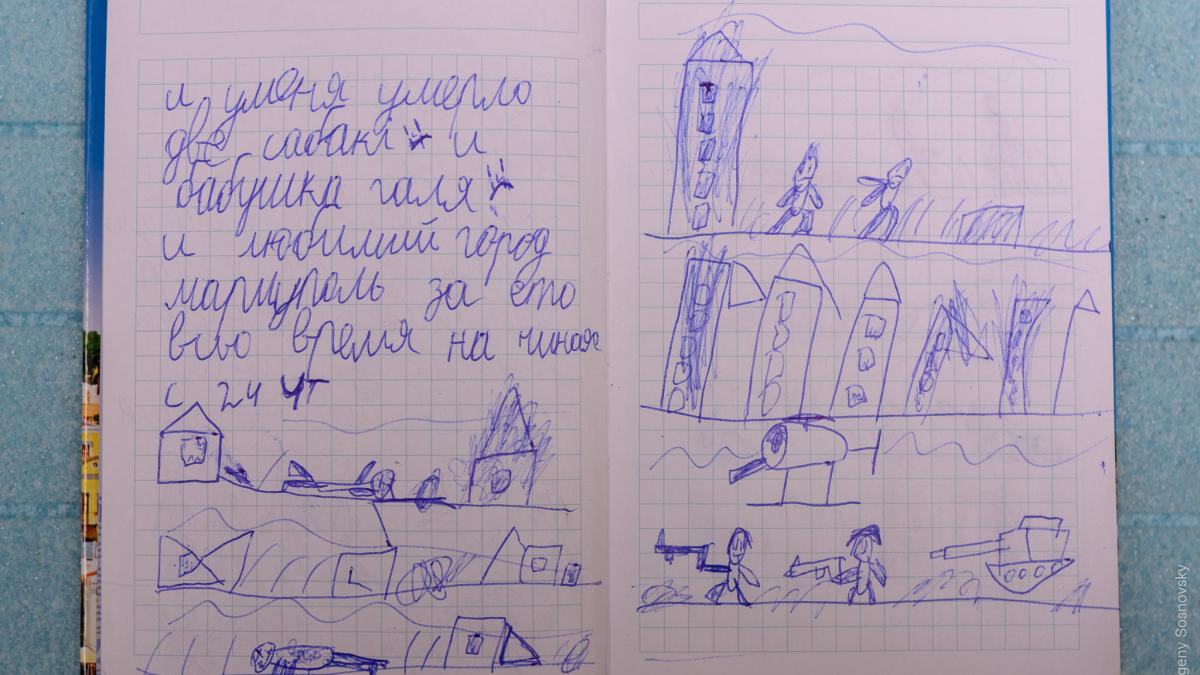 и уменя умерло
две сабаки и
бабушка галя
и любимий город
мариуполь за ето
всьо время на чиная
с 24 чт
geny Sosnovsky